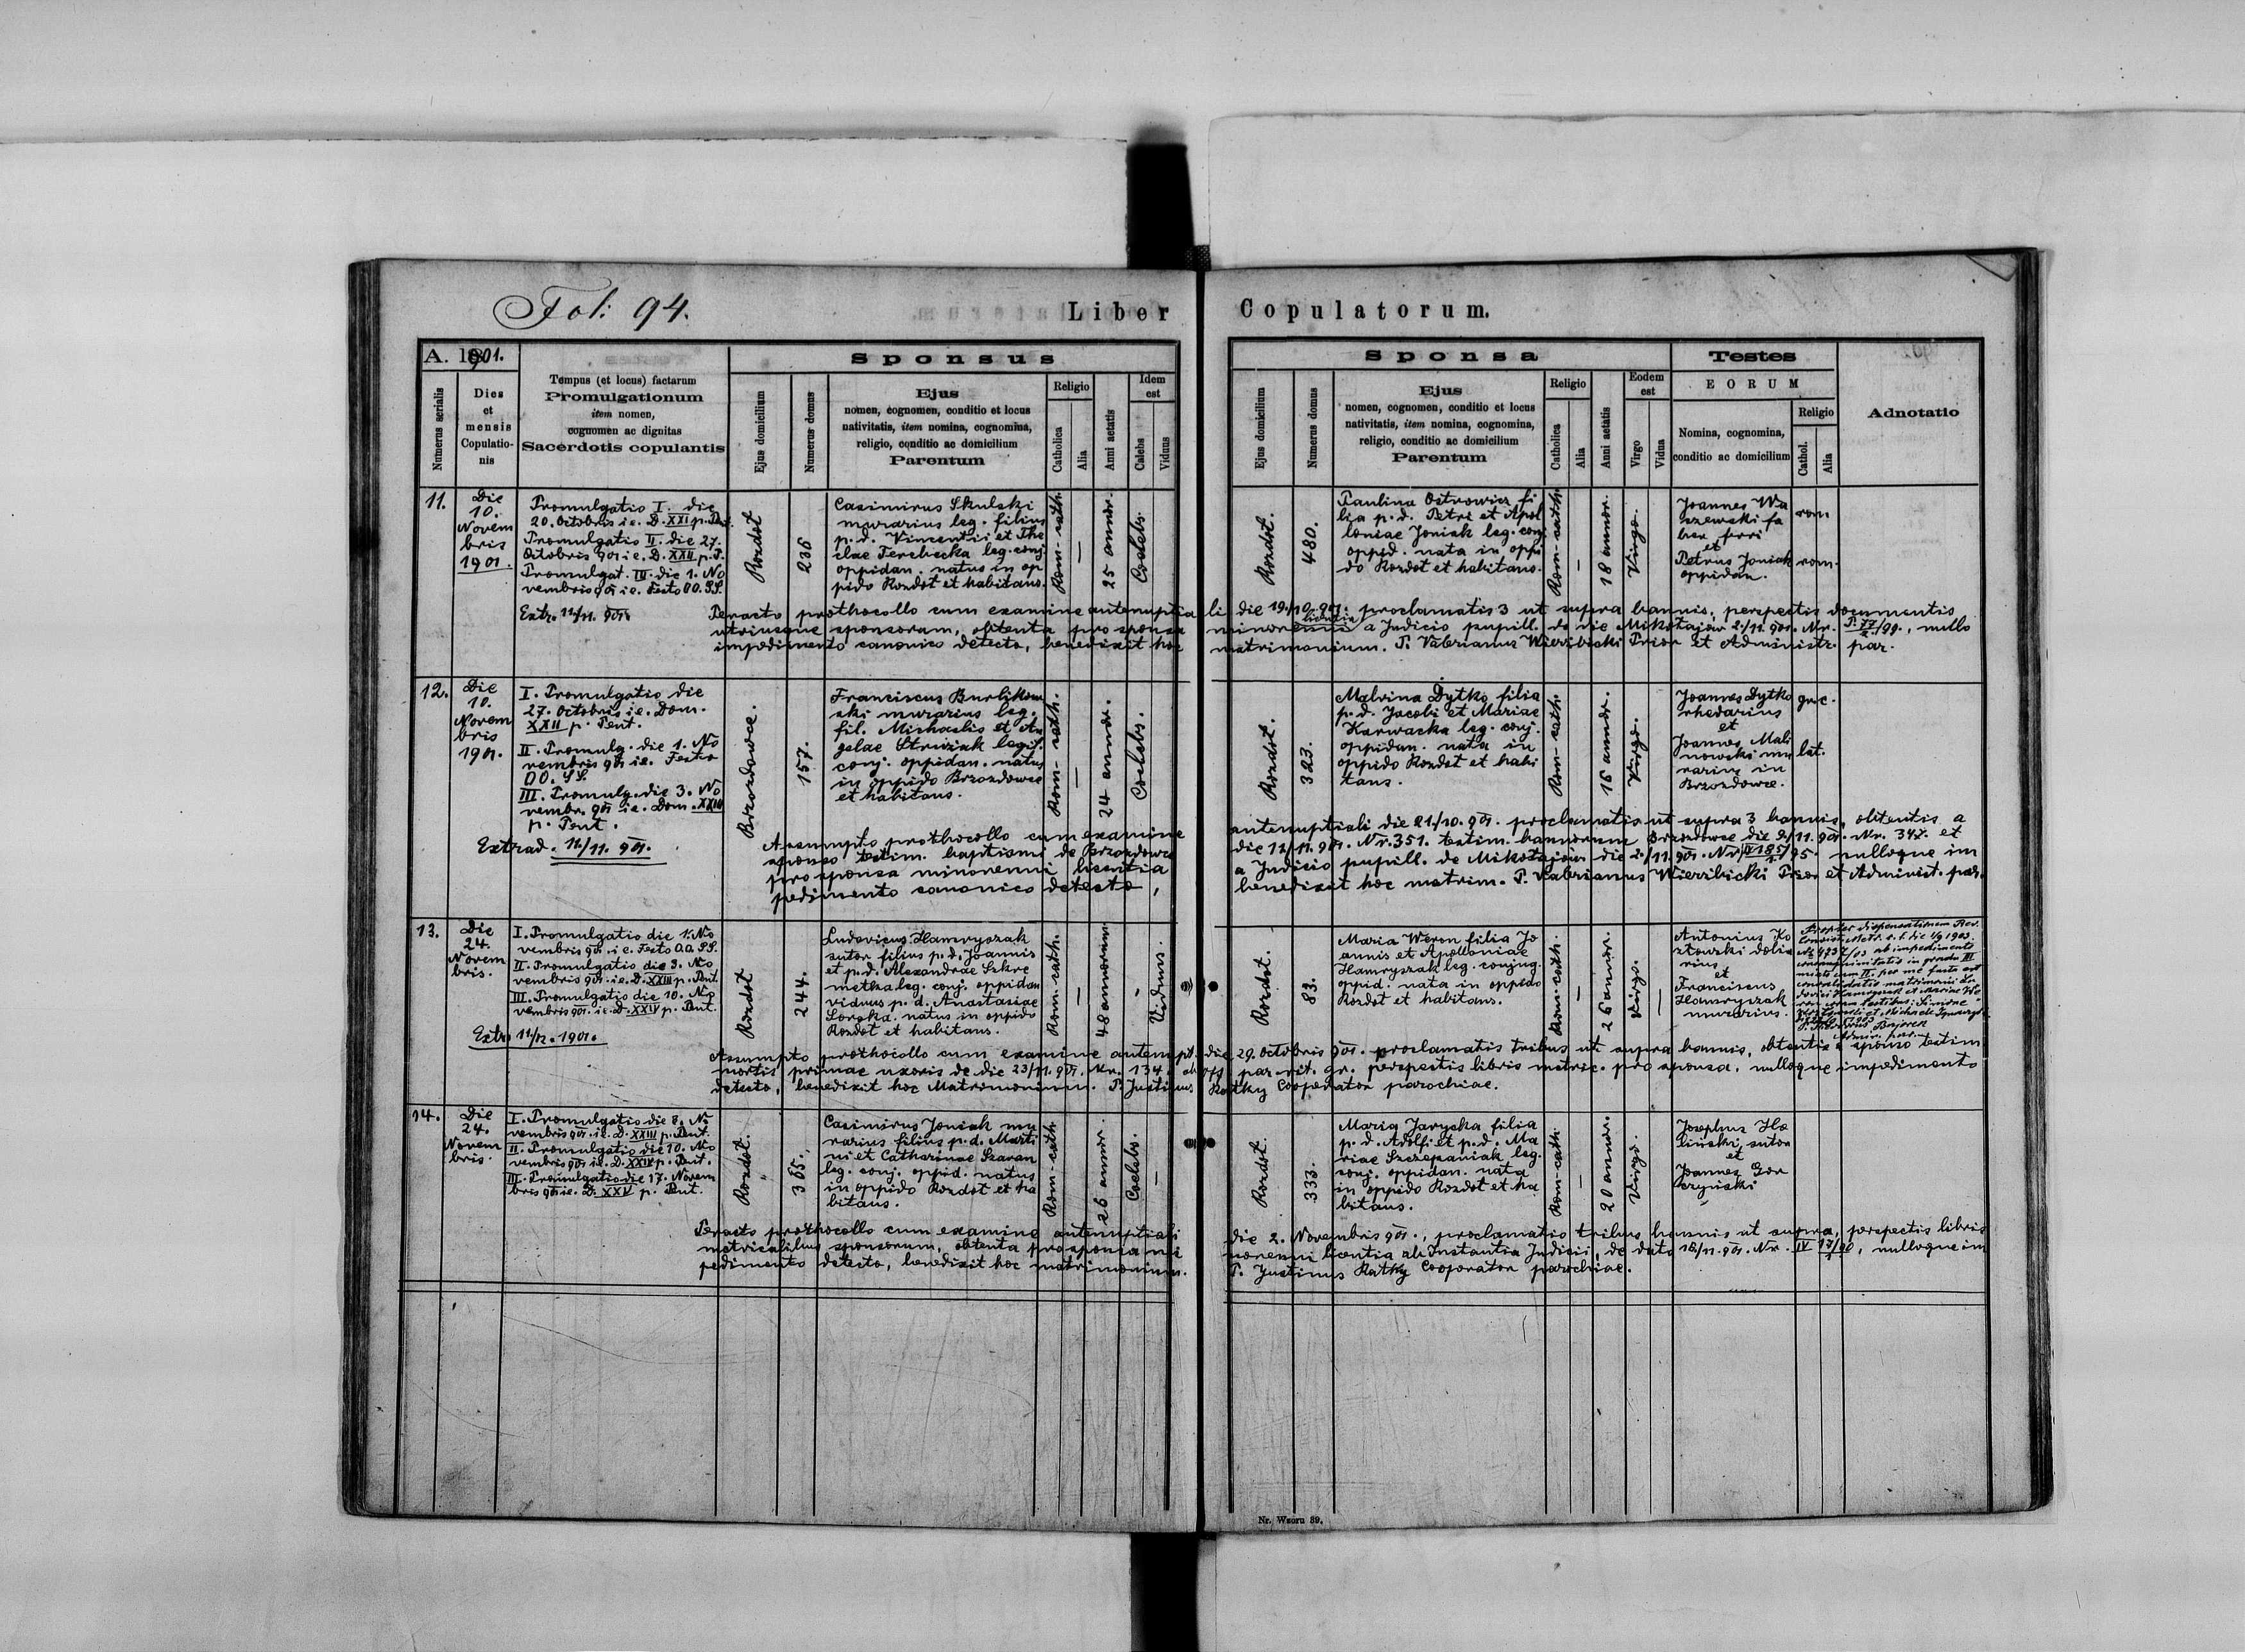 Fol: 94.
Liber Copulatorum.
A. 1901.
Numerus serialis
Dies
et
mensis
Copulatio-
nis
Tempus (et locus) factarum
Promulgationum
item nomen,
cognomen ac dignitas
Sacerdotis copulantis
Sponsus
Ejus domicilium
Numerus domus
Ejus
nomen, cognomen, conditio et locus
nativitatis, item nomina, cognomina,
religio, conditio ac domicilium
Parentum
Religio
Catholica
Alia
Anni aetatis
Idem
est
Calebs
Viduus
Sponsa
Ejus domicilium
Numerus domus
Ejus
nomen, cognomen, conditio et locus
nativitatis, item nomina, cognomina,
religio, conditio ac domicilium
Parentum
Religio
Catholica
Alia
Anni aetatis
Eodem
est
Virgo
Vidua
Testes
EORUM
Nomina, cognomina,
conditio ac domicilium
Religio
Cathol.
Alia
Adnotatio
11.
Die
10.
Novem
bris
1901.
Promulgatio I. die
20. Octobris i.e. D. XXI p. Pent.
Promulgatio II. die 27.
Octobris 901 i.e. D. XXII p. P.
Promulgat. III. die 1. No
vembris 901 i.e. Festo OO. SS.
Extr. 11/11. 901.
Rozdoł
236
Casimirus Skulski
murarius leg. filius
p. d. Vincentii et The
clae Terebecka leg. conj.
oppidan. natus in op
pido Rozdoł et habitans.
Rom-cath.
—
25 annor.
Coelebs.
Rozdoł.
480.
Paulina Ostrowicz fi
lia p. d. Petri et Apol
loniae Joniak leg. conj.
oppid. nata in oppi
do Rozdoł et habitans.
Rom-cath.
—
18 annor.
Virgo.
Joannes Wa
szewski fa
ber ferri
et
Petrus Joniak
oppidan.
rom.
rom.
Peracto prothocollo cum examine antenuptiali die 19./10. 901. proclamatis 3 ut supra bannis, perspectis documentis
utriusque sponsorum, obtenta pro sponsa minorenni licentia a Judicio pupill. de die Mikołajów 2./11. 901. Nr. P. 77/2./99., nullo
impedimento canonico detecto, benedixit hoc matrimonium. P. Valerianus Wierzbicki Prior et Administr. par.
12.
Die
10.
Novem
bris
1901.
I. Promulgatio die
27. Octobris i.e. Dom.
XXII p. Pent.
II. Promulg. die 1. No
vembris 901 i.e. Festo
OO. SS.
III. Promulg. die 3. No
vembr. 901 i.e. Dom. XXIII
p. Pent.
Extrad. 11/11. 901.
Brzozdowce.
157.
Franciscus Burlikow
ski murarius leg.
fil. Michaelis et An
gelae Struziak legit.
conj. oppidan. natus
in oppido Brzozdowce
et habitans.
Rom-cath.
—
24 annor.
Coelebs.
Rozdoł.
323.
Malvina Dytko filia
p. d. Jacobi et Mariae
Karwacka leg. conj.
oppidan. nata in
oppido Rozdoł et habi
tans.
Rom-cath.
16 annor.
Virgo.
Joannes Dytko
rhedarius
et
Joannes Mali
nowski mu
rarius in
Brzozdowce.
gr.c.
lat.
Assumpto prothocollo cum examine antenuptiali die 21./10. 901. proclamatis ut supra 3 bannis, obtentis a
sponso testim. baptismi de Brzozdowce die 12/11. 901. Nr. 351. testim. bannorum Brzozdowce die 9./11. 901. Nr. 347. et
pro sponsa minorenni licentia a Judicio pupill. de Mikołajów die 2./11. 901. Nr. IV 185/95. nulloque im
pedimento canonico detecto, benedixit hoc matrim. P. Valerianus Wierzbicki Prior et Administ. par.
13.
Die
24.
Novem
bris.
I. Promulgatio die 1. No
vembris 901. i.e. Festo O.O. SS.
II. Promulgatio die 3. No
vembris 901. i.e. D. XXIII p. Pent.
III. Promulgatio die 10. No
vembris 901. i.e. D. XXIV p. Pent.
Extr. 11/12. 1901.
Rozdoł
244.
Ludovicus Hamryszak
sutor filius p. d. Joannis
et p. d. Alexandrae Szkre
metka leg. conj. oppidan
viduus p. d. Anastasiae
Soroka. natus in oppido
Rozdoł et habitans.
Rom-cath.
—
48 annorum
-
Viduus.
Rozdoł.
83.
Maria Weron filia Jo
annis et Apolloniae
Hamryszak leg. conjug.
oppid. nata in oppido
Rozdoł et habitans.
Rom-cath.
—
26 annor.
Virgo.
—
Antonius Ko
ztowski dolia
rius
et
Franciscus
Hamryszak
murarius.
Propter dispensationem Rev.
Consist. Metr. r. l. die 1/9 1903.
ab impedimento
consanguinitatis in gradu III
mixto cum II. per me facta est
consolidatio matrimonii Lu
dovici Hamryszak et Mariae We
ron coram testibus: Simone
et Michaele
P. Theodorus Bajorek
Admin. par.
Assumpto prothocollo cum examine antenupt. die 29. Octobris 901. proclamatis tribus ut supra bannis, obtentis a sponso testim
mortis primae uxoris de die 23/11. 901. Nr. 134. ab off. par. rit. gr. perspectis libris metric. pro sponsa, nulloque impedimento
detecto, benedixit hoc Matrimonium. P. Justinus Ratky Cooperator parochiae.
14.
Die
24.
Novem
bris.
I. Promulgatio die 3. No
vembris 901. i.e. D. XXIII p. Pent.
II. Promulgatio die 10. No
vembris 901 i.e. D. XXIV p. Pent.
III. Promulgatio die 17. Novem
bris 901 i.e. D. XXV p. Pent.
Rozdoł.
365.
Casimirus Joniak mu
rarius filius p. d. Marti
ni et Catharinae Szaran
leg. conj. oppid. natus
in oppido Rozdoł et ha
bitans.
Rom-cath
26 annor.
Coelebs.
—
Rozdoł.
333.
Maria Jarycka filia
p. d. Adolfi et p. d. Ma
riae Szczepaniak leg.
conj. oppidan. nata
in oppido Rozdoł et ha
bitans.
Rom-cath.
—
20 annor.
Virgo.
Josephus Ho
liński sutor
et
Joannes Gor
czyński
Peracto prothocollo cum examine antenuptiali die 2. Novembris 901., proclamatis tribus bannis ut supra, perspectis libris
metricalibus sponsorum, obtenta pro sponsa mi norenni licentia ab Instantia Judicii, de dato 16/11. 901. Nr. IV 17/90, nulloque im
pedimento detecto, benedixit hoc matrimonium. P. Justinus Ratky Cooperator parochiae.
Nr. Wzoru 39.